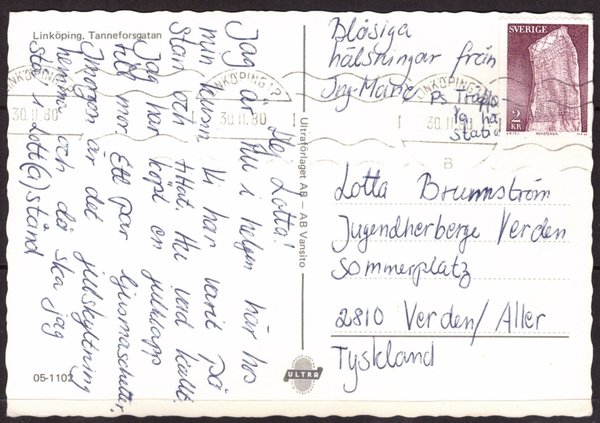 Linköping. Tanneforsgatan
Hej Lotta!
Jag är nu i helgen här hos
min kusin. Vi har varit på
stan och tittat. Hu vad kallt
Jag har köpt en julklapp
till mor. Ett par ljusmanschetter.
Imorgon är det julskyltning
hemma och då ska jag
stå i Lott(a)stånd
Blåsiga
hälsningar från
Ing-Marie
Ps
SVERIGE
2
KR
LINKÖPING 17
30.11.80
LINKÖPING 17
30.11.80
LINKÖPING
30.11
B
Ultraförlaget AB - AB Vansito
Lotta Brunnström
Jugendherberge Verden
Sommerplatz
2810 Verden/Aller
Tyskland
ULTRA
05-1102